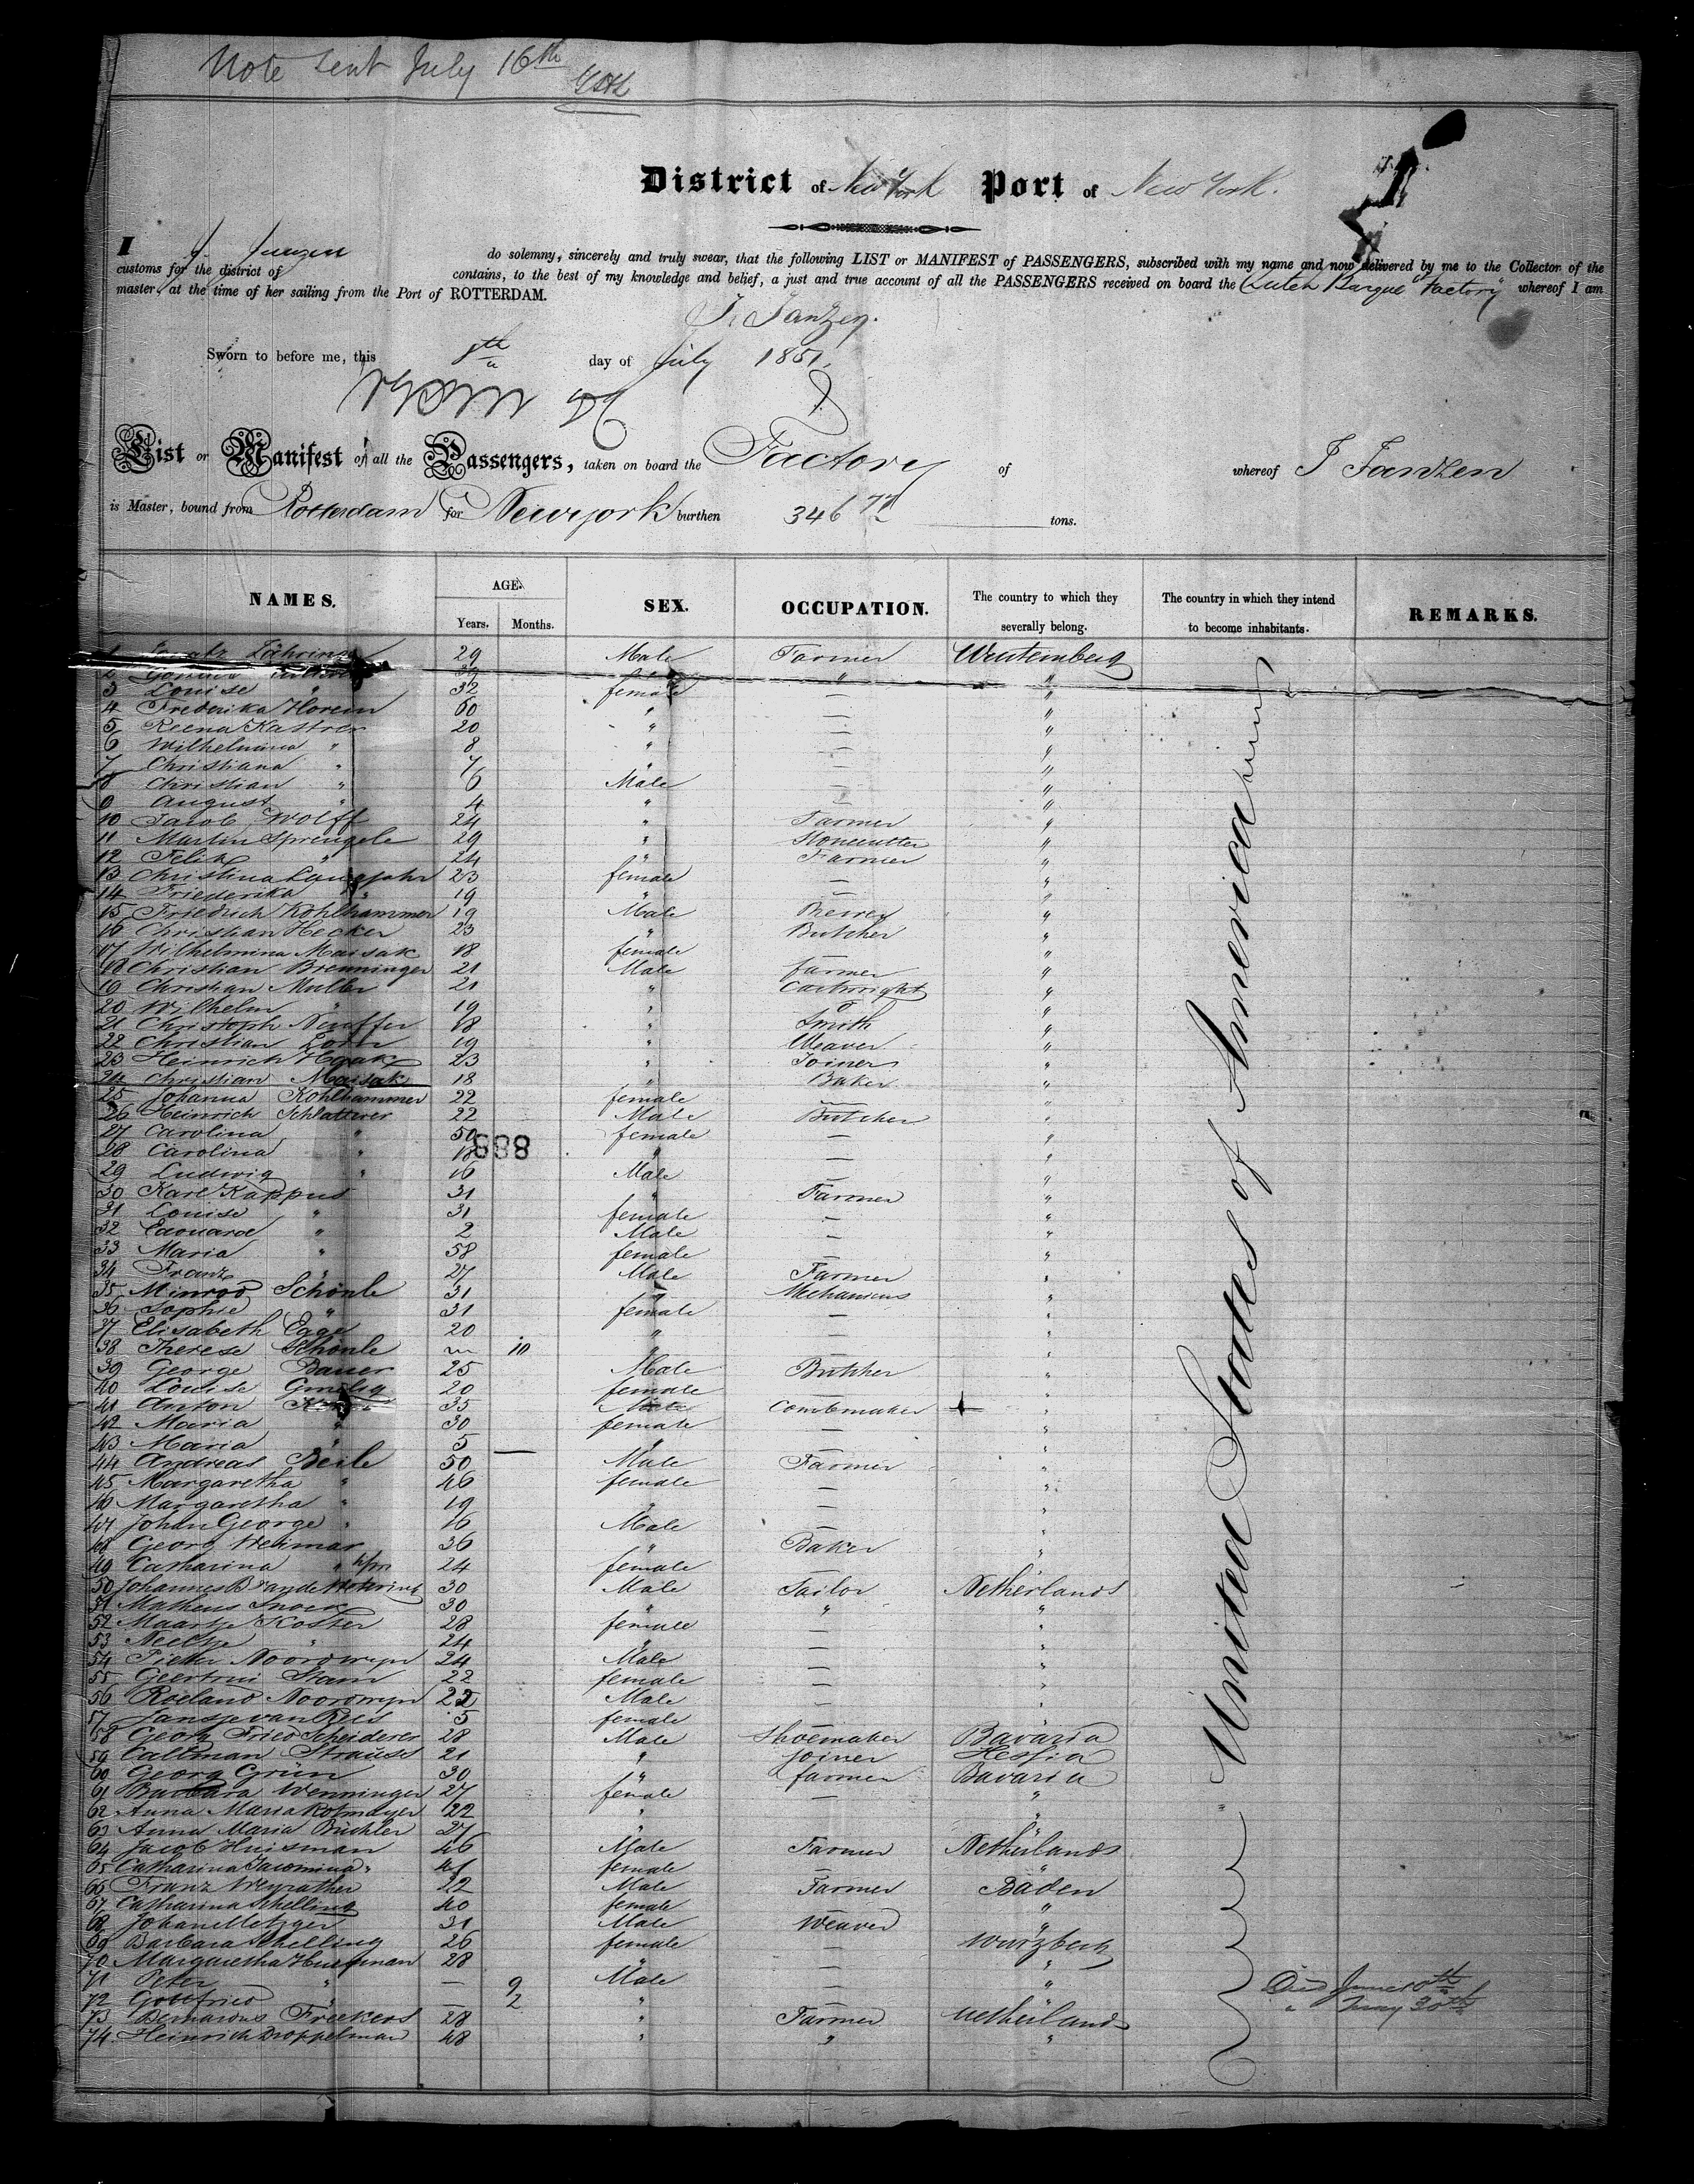 Note sent July 16th
District of New York Port of New York.
I J. Janzen do solemny, sincerely and truly swear, that the following LIST or MANIFEST of PASSENGERS, subscribed with my name and now delivered by me to the Collector of the
customs for the district of contains, to the best of my knowledge and belief, a just and true account of all the PASSENGERS received on board the Dutch Barque "Factory" whereof I am
master, at the time of her sailing from the Port of ROTTERDAM.
J. Janzen.
Sworn to before me, this 8th day of July 1851.
List or Manifest of all the Passengers, taken on board the Factory of whereof J Janzen
is Master, bound from Rotterdam for Newyork burthen 346 tons.
NAMES. AGE. SEX. OCCUPATION. The country to which they severally belong. The country in which they intend to become inhabitants. REMARKS.
Years. Months.
1 29 Male Farmer Wurtemberg
2 39 " "
3 Louise " 32 female — "
4 Frederika 60 " — "
5 20 " — "
6 Wilhelmina " 8 " — "
7 Christiana " 7 " — "
8 Christian " 6 Male — "
9 August " 4 " — "
10 Jacob Wolff 24 " Farmer "
11 Martin Sprengele 29 " Stonecutter "
12 Felix " 24 " Farmer "
13 Christina Langjahr 23 female — "
14 Friederika " 19 " — "
15 Friedrich Kohlhammer 19 Male "
16 Christian Hecker 23 " Butcher "
17 Wilhelmina Maisak 18 female — "
18 Christian Brenninger 21 Male farmer "
19 Christian Muller 21 " Cartwright "
20 Wilhelm " 19 " "
21 Christoph Neuffer 18 " Smith "
22 Christian Zorn 19 " Weaver "
23 Heinrich Haak 23 " Joiner "
24 Christian Maisak 18 " Baker "
25 Johanna Kohlhammer 22 female — "
26 Heinrich Schlatterer 22 Male Butcher "
27 Carolina " 50 female — "
888
28 Carolina " 18 " — "
29 Ludwig " 16 Male — "
30 Karl Kappus 31 " Farmer "
31 Louise " 31 female — "
32 Edouard " 2 Male — "
33 Maria " 58 female — "
34 Franz " 27 Male Farmer "
35 Schönle 31 " Mechanicus "
36 Sophie " 31 female — "
37 Elisabeth 20 " — "
38 Therese Schönle 10 " — "
39 George Bauer 25 Male Butcher "
40 Louise 20 female — "
41 Anton 35 Male Combmaker "
42 Maria " 30 female — "
43 Maria " 5 " — "
44 Andreas Beile 50 Male Farmer "
45 Margaretha " 46 female — "
46 Margaretha " 19 " — "
47 Johan George " 16 Male — "
48 Georg Weimar 36 " Baker "
49 Catharina " 24 female — "
50 Johannes 30 Male Tailor Netherlands
51 Matheus Snoek 30 " " "
52 Maartje Koster 28 female — "
53 Neeltje " 24 " — "
54 Pieter Noordwyn 24 Male — "
55 Geertrui Stam 22 female — "
56 Roeland Noordwyn Male — "
57 Jansje van Rees 5 female — "
58 Georg Fried Scheiderer 28 Male Shoemaker Bavaria
59 Caltman Strauss 21 " Joiner Hessia
60 Georg Grün 30 " farmer Bavaria
61 Barbara Wenninger 27 female — "
62 Anna Maria Rotmayer 22 " "
63 Anna Maria Büchler 27 " "
64 Jacob Huisman 46 Male Farmer Netherlands
65 Catharina Jacomina " 41 female — "
66 Franz Weyrather 32 Male Farmer Baden
67 Catharina Schelling 40 female — "
68 Johan Metzger 31 Male Weaver "
69 Barbara Schelling 26 female —
70 Margaretha 28 " — "
71 Peter " — 9 Male — " Died June 10th
72 Gottfried " — 2 " — " " May 30th
73 Bernardus Freekers 28 " Farmer Netherlands
74 Heinrich Droppelman 48 " " "
United States of America